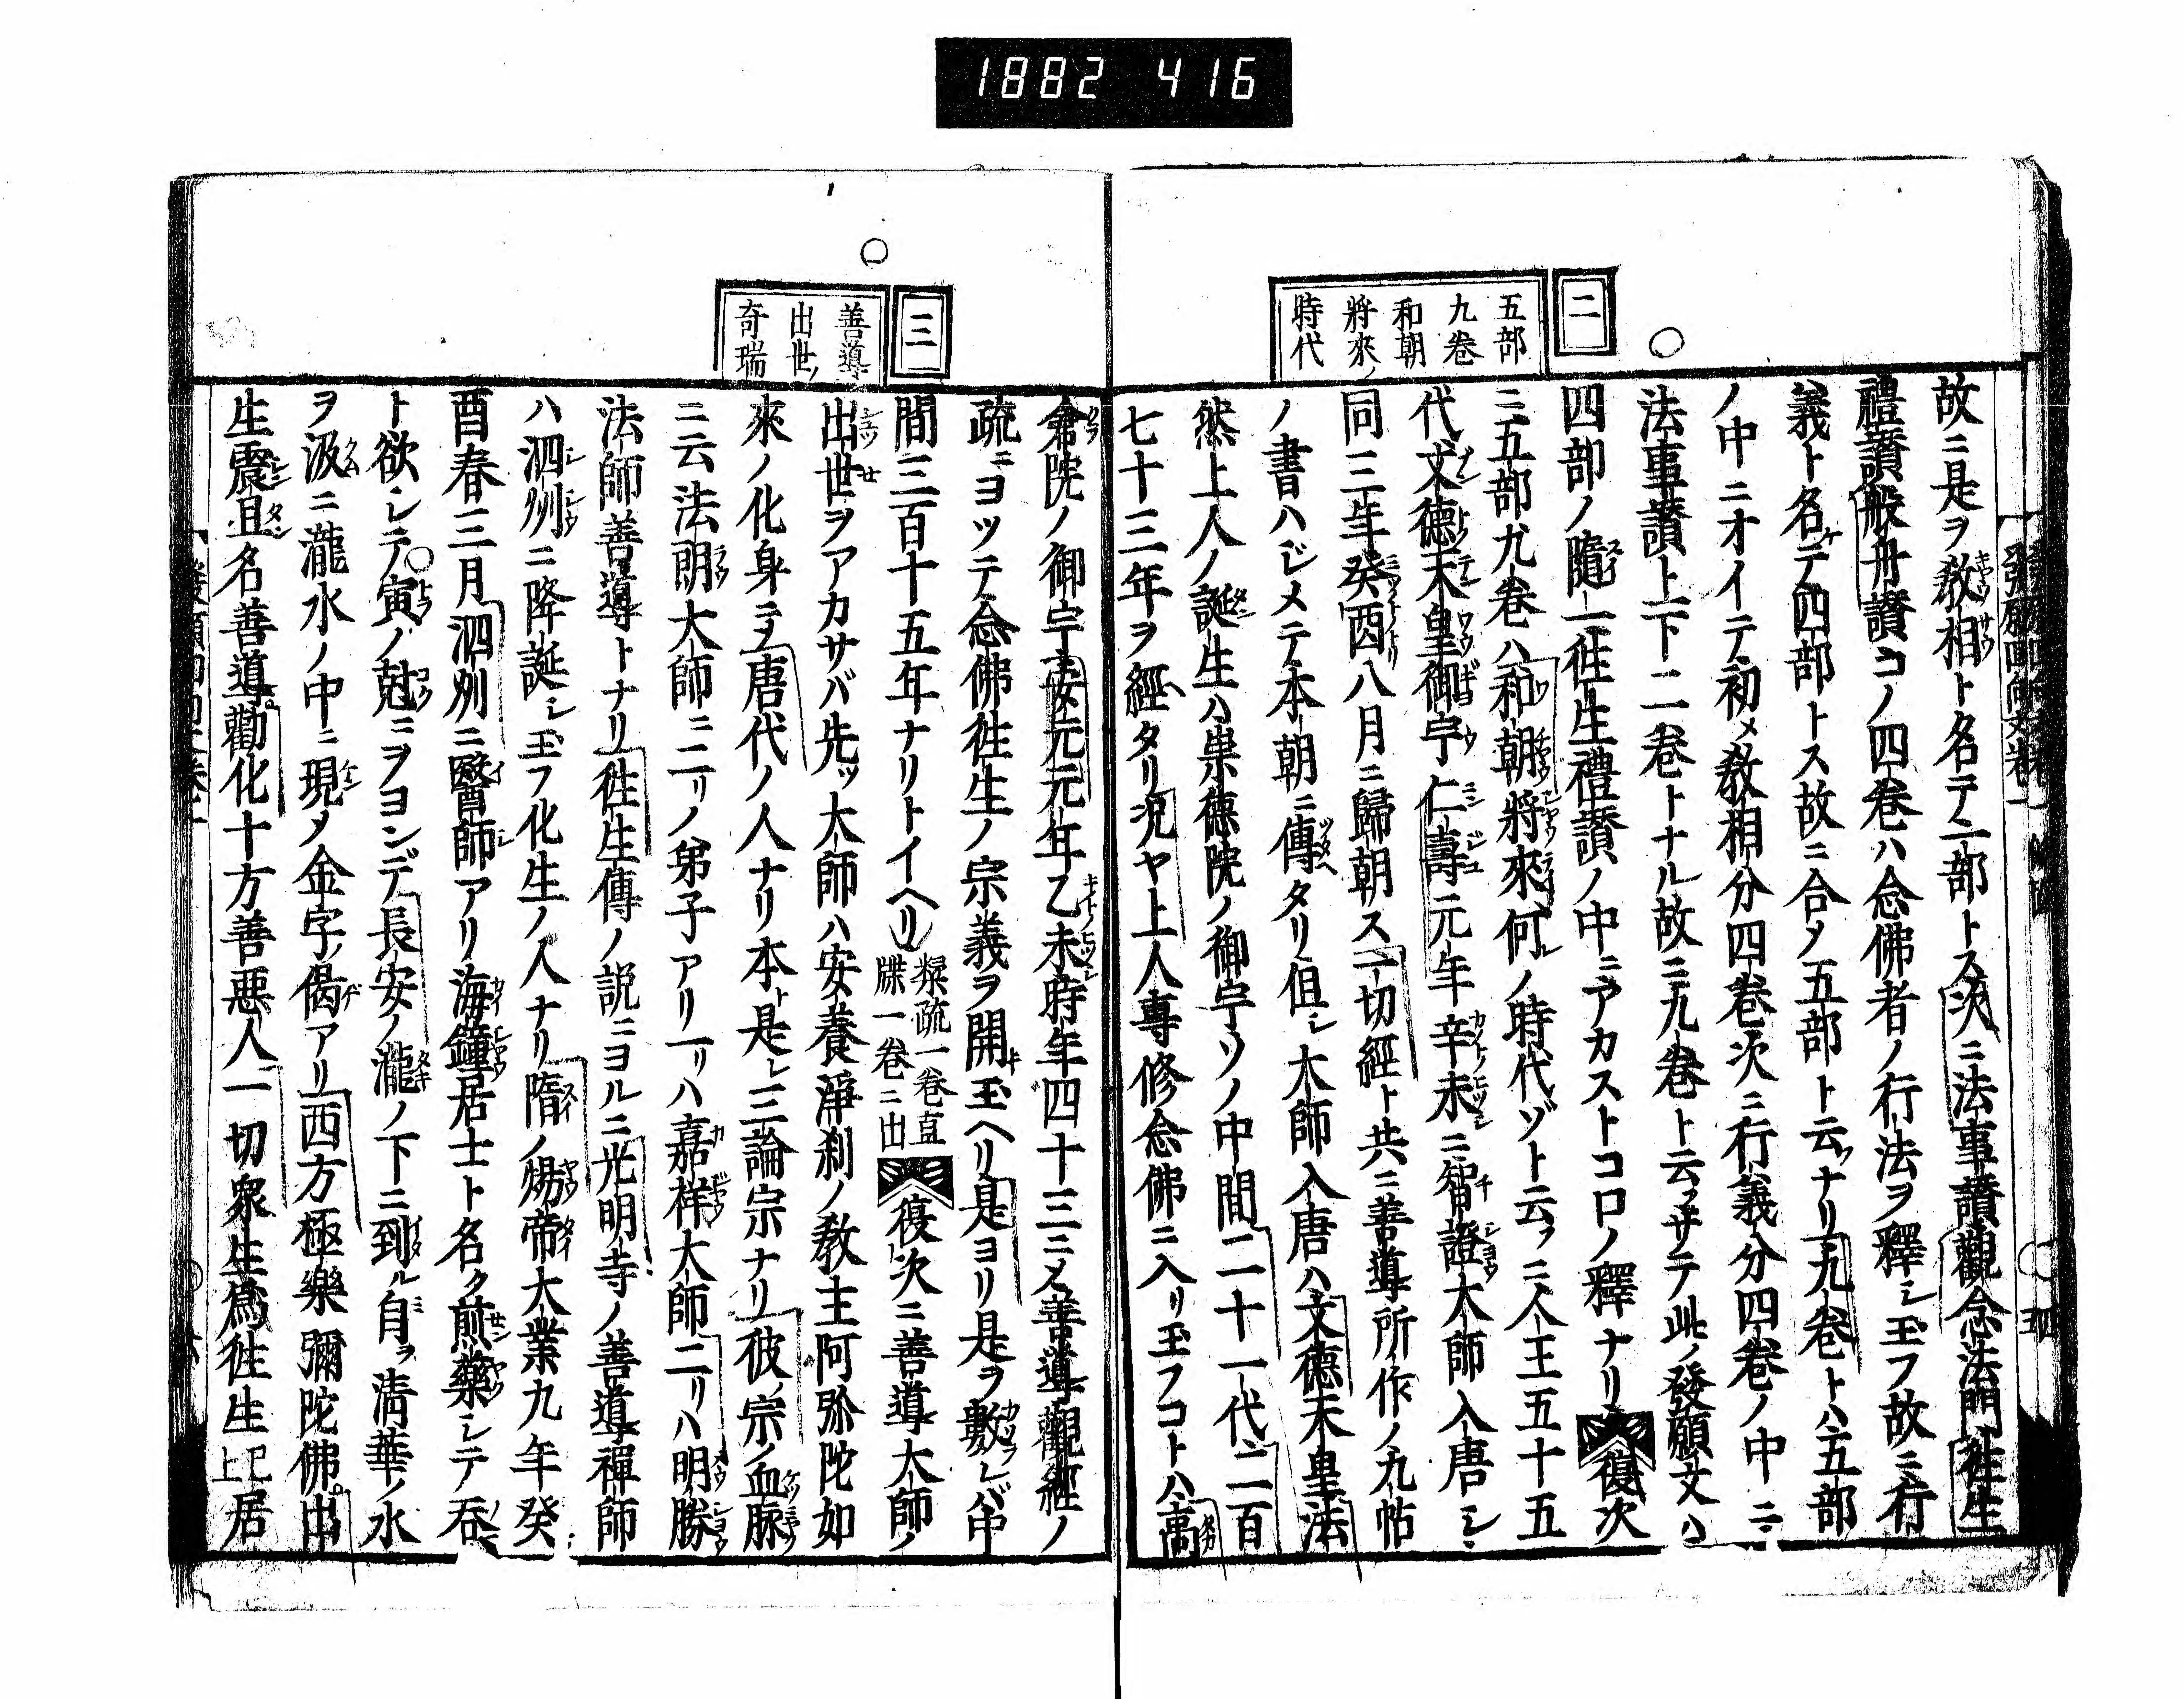 1882 416
二
五部
九巻
和朝
將來ノ
時代
故ニ是ヲ教相ト名テ一部トス次ニ法事讃觀念法門徃生
禮讃般舟讃コノ四巻ハ念佛者ノ行法ヲ釋シ玉フ故ニ行
義ト名テ四部トス故ニ合メ五部ト云ナリ九巻トハ五部
ノ中ニオイテ初メ教相分四巻次ニ行義分四巻ノ中ニ
法事讃上下二巻トナル故ニ九巻ト云フサテ此ノ發願文ハ
四部ノ隨一徃生禮讃ノ中ニアカストコロノ釋ナリ復次
ニ五部九巻ハ和朝將來何レノ時代ゾト云フニ人王五十五
代文德天皇御宇仁壽元年辛未ニ智證大師入唐シ
同三年癸酉八月ニ歸朝ス一切經ト共ニ善導所作ノ九帖
ノ書ハジメテ本朝ニ傳タリ但シ大師入唐ハ文德天皇法
然上人ノ誕生ハ崇德院ノ御宇ソノ中間二十一代二百
七十三年ヲ經タリ况ヤ上人專修念佛ニ入リ玉フコトハ高
三
善導
出世ノ
奇瑞
倉院ノ御宇安元元年乙未時年四十三ニメ善導觀經ノ
疏ニヨツテ念佛徃生ノ宗義ヲ開玉ヘリ是ヨリ是ヲ數レバ中
間三百十五年ナリトイヘリ
楷疏一卷直
牒一卷ニ出
復次ニ善導大師ノ
出世ヲアカサバ先ッ大師ハ安養淨刹ノ教主阿弥陀如
來ノ化身ニメ唐代ノ人ナリ本ト是レ三論宗ナリ彼ノ宗ノ血脉
ニ云法朗大師ニ二リノ弟子アリ一リハ嘉祥大師二リハ明勝
法師善導トナリ徃生傳ノ説ニヨルニ光明寺ノ善導禪師
ハ泗州ニ降誕シ玉フ化生ノ人ナリ隋ノ煬帝大業九年癸
酉春三月泗州ニ醫師アリ海鐘居士ト名ク煎藥シテ呑
ト欲シテ寅ノ尅ニヲヨンデ長安ノ瀧ノ下ニ到ル自ラ淸華ノ水
ヲ汲ニ瀧水ノ中ニ現メ金字ノ偈アリ西方極樂彌陀佛中
生震旦名善導勸化十方善惡人一切衆生爲徃生上已居